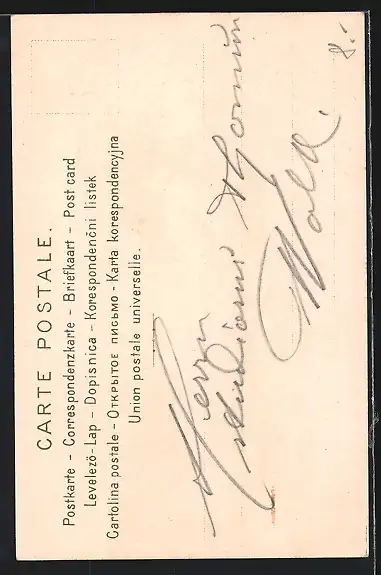 CARTE POSTALE.
Postkarte – Correspondenzkarte – Briefkaart – Post card
Levelező-Lap – Dopisnica – Korespondenční listek
Cartolina postale – Открытое письмо – Karta korespondencyjna
Union postale universelle.
Herrn
8.-